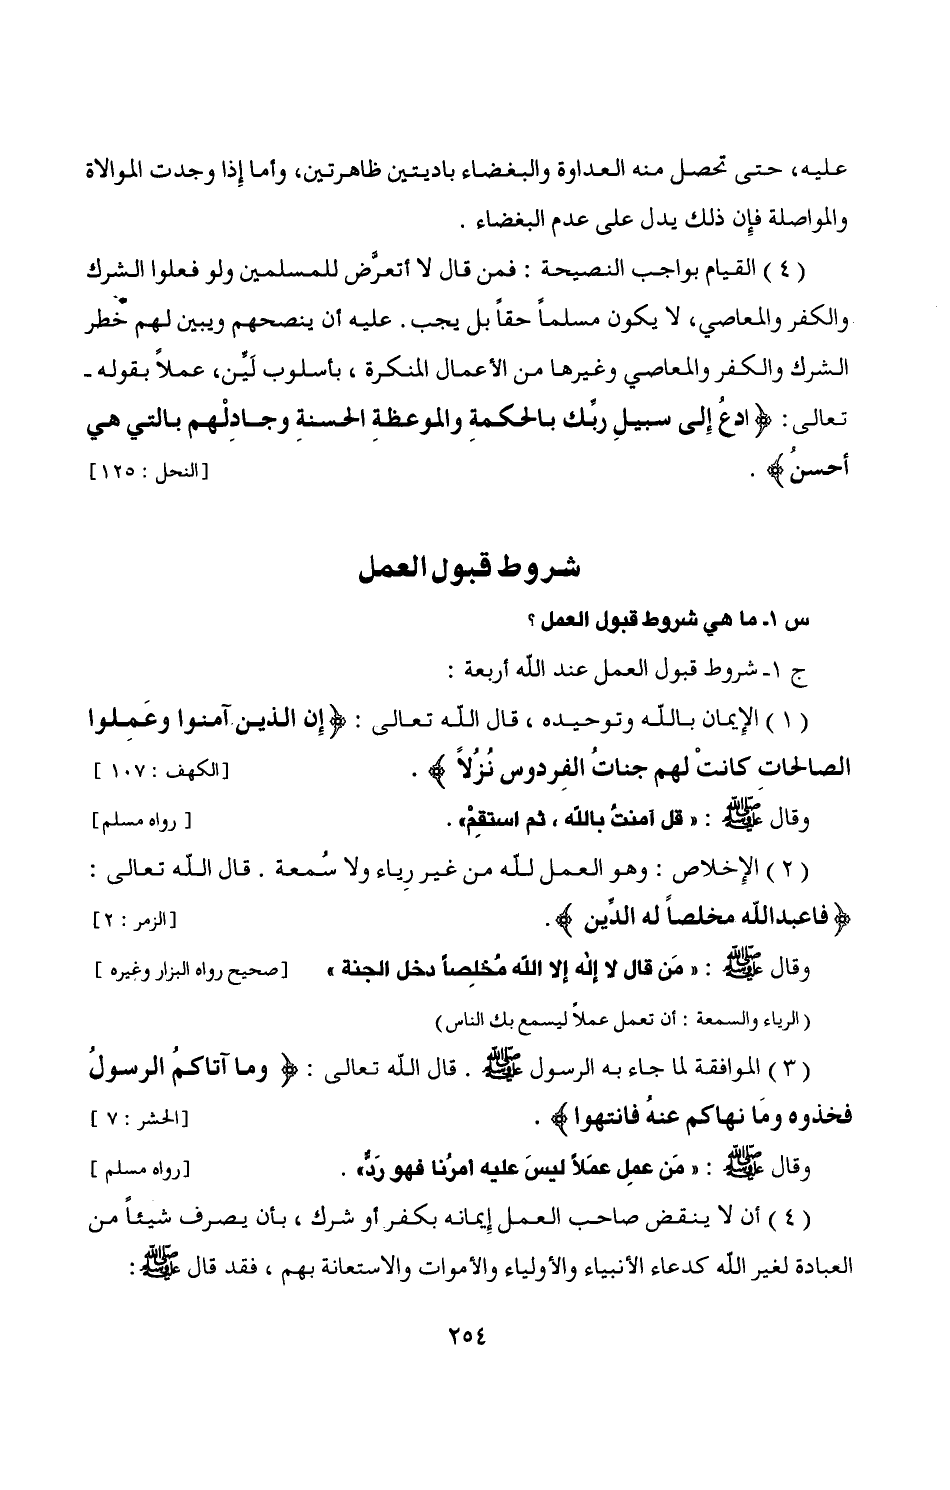 عليه، حتى تحصل منه العداوة والبغضاء باديتين ظاهرتين، وأما إذا وجدت الموالاة
والمواصلة فإن ذلك يدل على عدم البغضاء .
( ٤ ) القيام بواجب النصيحة : فمن قال لا أتعرَّض للمسلمين ولو فعلوا الشرك
والكفر والمعاصي، لا يكون مسلماً حقاً بل يجب . عليه أن ينصحهم ويبين لهم خطر
الشرك والكفر والمعاصي وغيرها من الأعمال المنكرة ، بأسلوب لَيِّن، عملاً بقوله ـ
تعالى : ﴿ ادعُ إلى سبيلِ ربِّك بالحكمةِ والموعظةِ الحسنةِ وجادِلْهم بالتي هي
أحسنُ ﴾ . [النحل : ١٢٥]
شروط قبول العمل
س ١ـ ما هي شروط قبول العمل ؟
ج ١ـ شروط قبول العمل عند اللّه أربعة :
( ١ ) الإيمان باللّه وتوحيده ، قال اللّه تعالى : ﴿ إن الذين آمنوا وعَمِلوا
الصالحاتِ كانتْ لهم جناتُ الفِردوسِ نُزُلاً ﴾ . [الكهف : ١٠٧ ]
وقال ﷺ : « قل آمنتُ باللّه ، ثم استقِمْ» . [ رواه مسلم]
( ٢ ) الإخلاص : وهو العمل للّه من غير رياء ولا سُمعة . قال اللّه تعالى :
﴿ فاعبد اللّه مخلصاً له الدِّين ﴾ . [الزمر : ٢]
وقال ﷺ : « مَن قال لا إله إلا اللّه مُخلِصاً دخل الجنة » [صحيح رواه البزار وغيره ]
( الرياء والسمعة : أن تعمل عملاً ليسمع بك الناس)
( ٣ ) الموافقة لما جاء به الرسول ﷺ . قال اللّه تعالى : ﴿ وما آتاكمُ الرسولُ
فخذوه ومَا نهاكم عنهُ فانتهوا ﴾ . [الحشر : ٧ ]
وقال ﷺ : « مَن عمِل عمَلاً ليسَ عليه أمرُنا فهو رَدٌّ» . [رواه مسلم ]
( ٤ ) أن لا ينقض صاحب العمل إيمانه بكفر أو شرك ، بأن يصرف شيئاً من
العبادة لغير اللّه كدعاء الأنبياء والأولياء والأموات والاستعانة بهم ، فقد قال ﷺ :
٢٥٤